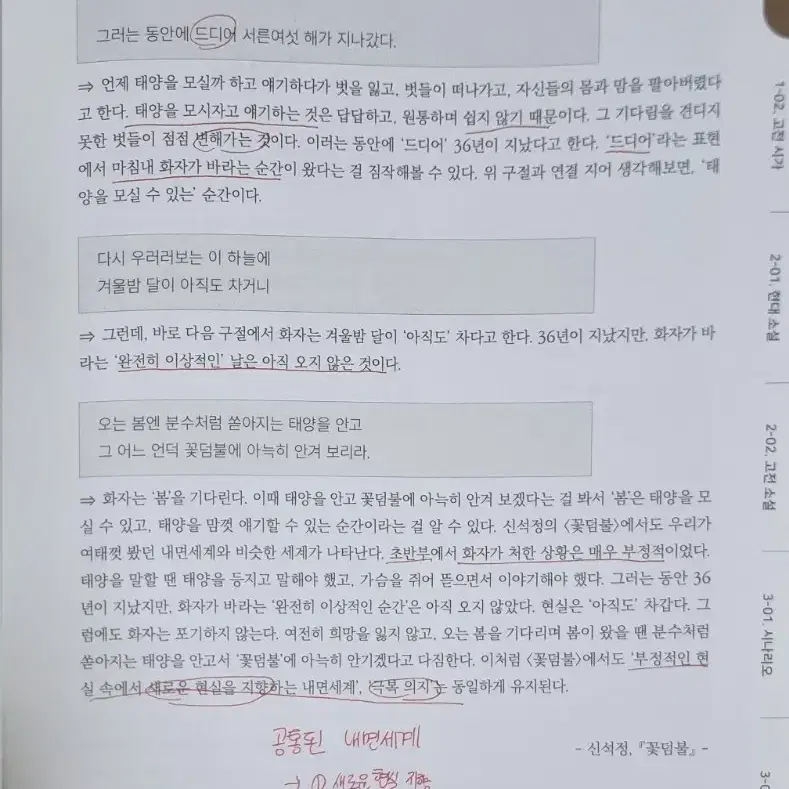 그러는 동안에 드디어 서른여섯 해가 지나갔다.
⇒ 언제 태양을 모실까 하고 얘기하다가 벗을 잃고, 벗들이 떠나가고, 자신들의 몸과 맘을 팔아버렸다
고 한다. 태양을 모시자고 얘기하는 것은 답답하고, 원통하며 쉽지 않기 때문이다. 그 기다림을 견디지
못한 벗들이 점점 변해가는 것이다. 이러는 동안에 '드디어' 36년이 지났다고 한다. '드디어'라는 표현
에서 마침내 화자가 바라는 순간이 왔다는 걸 짐작해볼 수 있다. 위 구절과 연결 지어 생각해보면, '태
양을 모실 수 있는' 순간이다.
다시 우러러보는 이 하늘에
겨울밤 달이 아직도 차거니
⇒ 그런데, 바로 다음 구절에서 화자는 겨울밤 달이 '아직도' 차다고 한다. 36년이 지났지만, 화자가 바
라는 '완전히 이상적인' 날은 아직 오지 않은 것이다.
오는 봄엔 분수처럼 쏟아지는 태양을 안고
그 어느 언덕 꽃덤불에 아늑히 안겨 보리라.
⇒ 화자는 '봄'을 기다린다. 이때 태양을 안고 꽃덤불에 아늑히 안겨 보겠다는 걸 봐서 '봄'은 태양을 모
실 수 있고, 태양을 맘껏 얘기할 수 있는 순간이라는 걸 알 수 있다. 신석정의 〈꽃덤불〉에서도 우리가
여태껏 봤던 내면세계와 비슷한 세계가 나타난다. 초반부에서 화자가 처한 상황은 매우 부정적이었다.
태양을 말할 땐 태양을 등지고 말해야 했고, 가슴을 쥐어 뜯으면서 이야기해야 했다. 그러는 동안 36
년이 지났지만, 화자가 바라는 '완전히 이상적인 순간'은 아직 오지 않았다. 현실은 '아직도' 차갑다. 그
럼에도 화자는 포기하지 않는다. 여전히 희망을 잃지 않고, 오는 봄을 기다리며 봄이 왔을 땐 분수처럼
쏟아지는 태양을 안고서 '꽃덤불'에 아늑히 안기겠다고 다짐한다. 이처럼 〈꽃덤불〉에서도 '부정적인 현
실 속에서 새로운 현실을 지향하는 내면세계', '극복 의지'는 동일하게 유지된다.
공통된 내면세계
- 신석정, 『꽃덤불』 -
→ ① 새로운 현실 지향
1-02. 고전 시가
2-01. 현대 소설
2-02. 고전 소설
3-01. 시나리오